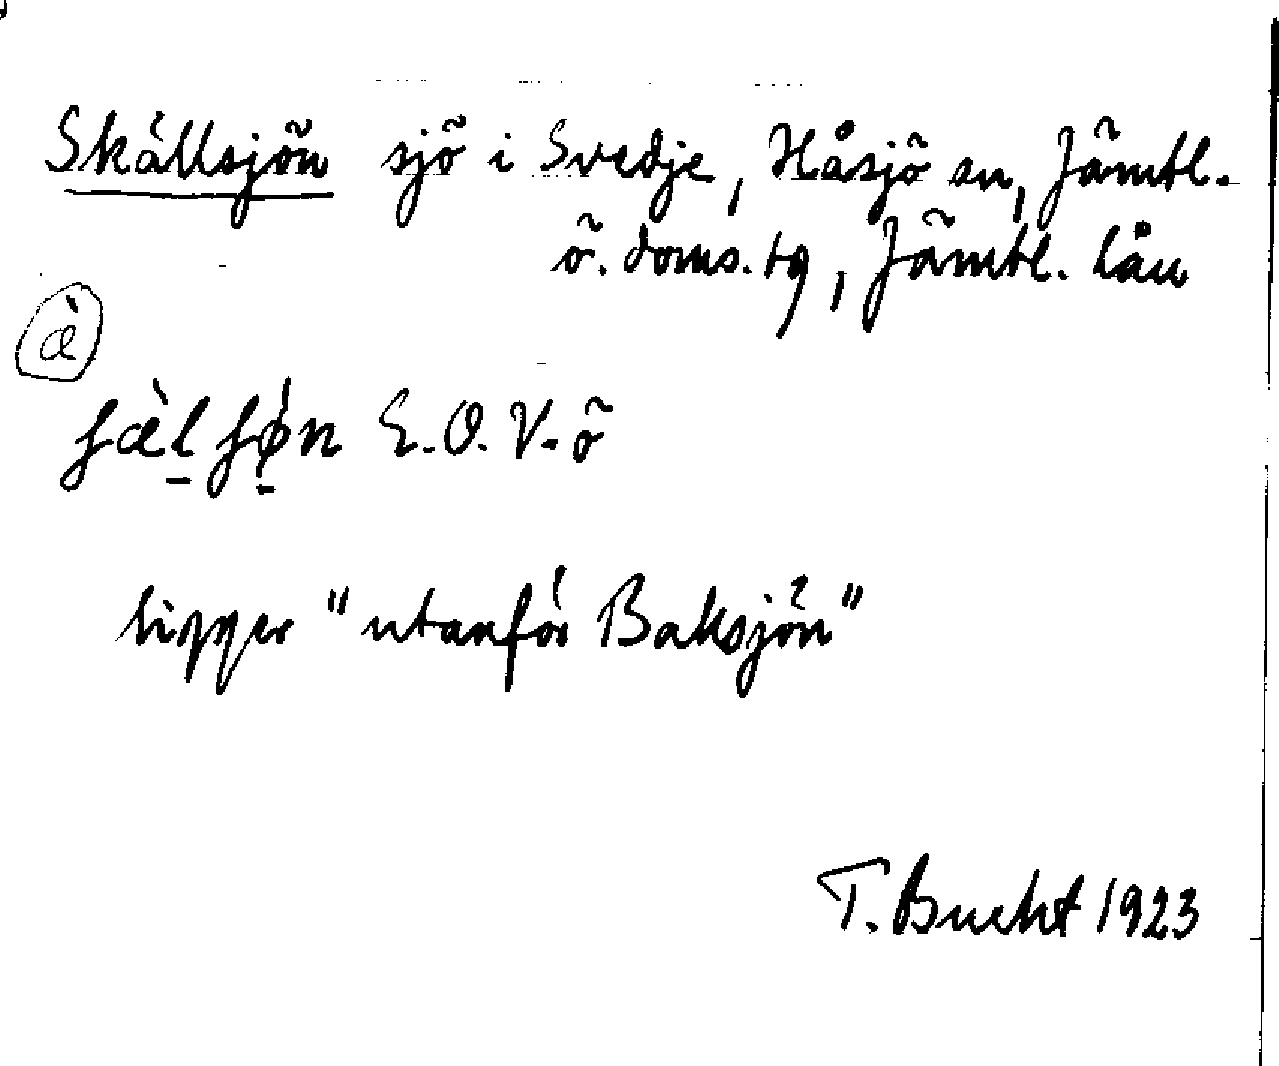 Skällsjön sjö i Svedje, Håsjö sn, Jämtl.
ö. doms. tg, Jämtl. län
æ̀
ʃæ̀l̠ ʃǿ̠n E. O. V-ö
ligger "utanför Baksjön"
T. Bucht 1923